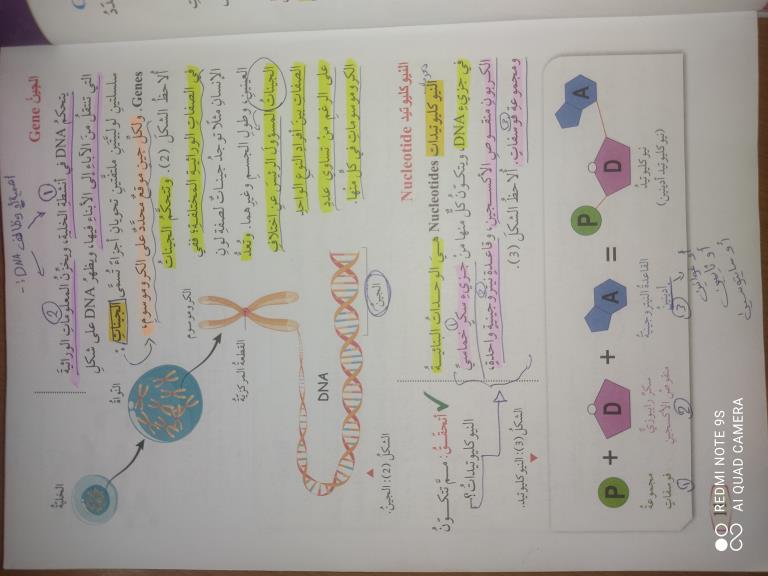 الجين Gene
يتحكمُ DNA في أنشطةِ الخليةِ، ويخزّنُ المعلوماتِ الوراثيةَ
التي تنتقلُ منَ الآباءِ إلى الأبناءِ فيها، ويظهرُ DNA على شكلِ
سلسلتينِ لولبيتينِ ملتفّتينِ تحويانِ أجزاءً تُسمّى الجيناتِ
Genes، ولكلِّ جينٍ موقعٌ محدّدٌ على الكروموسومِ،
ألاحظُ الشكلَ (2). وتتحكّمُ الجيناتُ
في الصفاتِ الوراثيةِ المختلفةِ؛ ففي
الإنسانِ مثلًا توجدُ جيناتٌ لصفةِ لونِ
العينينِ، وطولِ الجسمِ وغيرِهما. وتُعدُّ
الجيناتُ المسؤولَ الرئيسَ عنِ اختلافِ
الصفاتِ بينَ أفرادِ النوعِ الواحدِ
على الرغمِ منْ تساوي عددِ
الكروموسوماتِ في كلٍّ منها
الخليةُ
النواةُ
الكروموسوم
القطعةُ المركزيةُ
DNA
الجين
الشكلُ (2): الجينُ
النيوكليوتيد Nucleotide
النيوكليوتيدات Nucleotides هيَ الوحداتُ البنائيةُ
في جزيءِ DNA، ويتكوّنُ كلٌّ منها منْ جزيءِ سكرٍ خماسيِّ
الكربونِ منقوصِ الأكسجينِ، وقاعدةٍ نيتروجينيةٍ واحدةٍ،
ومجموعةِ فوسفاتٍ. ألاحظُ الشكلَ (3).
أتحققُ: ممَّ تتكوّنُ
النيوكليوتيداتُ؟
الشكلُ (3): النيوكليوتيد.
P + D + A = P D A
مجموعةُ فوسفاتٍ
سكرٌ رايبوزيٌّ منقوصُ الأكسجينِ
القاعدةُ النيتروجينيةُ أدينين
نيوكليوتيدُ
(نيوكليوتيد أدينين)
أو ثايمين
REDMI NOTE 9S
AI QUAD CAMERA